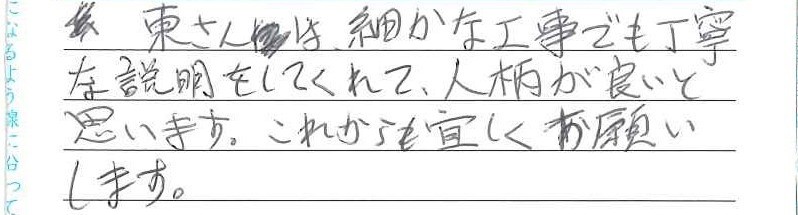 東さんは、細かな工事でも丁寧
な説明をしてくれて、人柄が良いと
思います。これからも宜しくお願い
します。
になるよう線に沿って